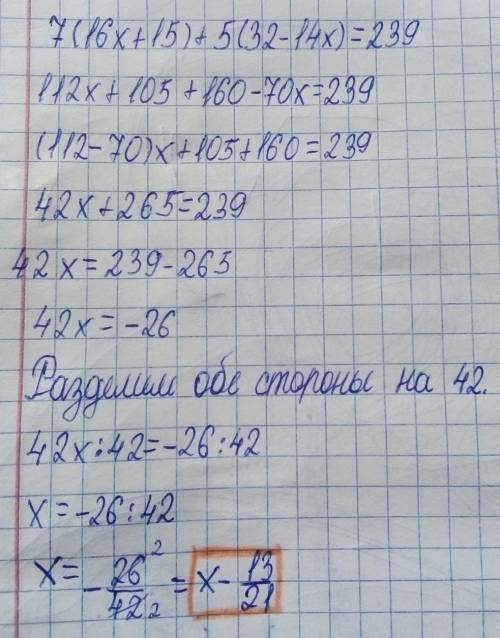 7(16x+15)+5(32-14x)=239
112x+105+160-70x=239
(112-70)x+105+160=239
42x+265=239
42x=239-265
42x=-26
Разделим обе стороны на 42.
42x:42=-26:42
x=-26:42
x=-26/42 2 2 = x-13/21